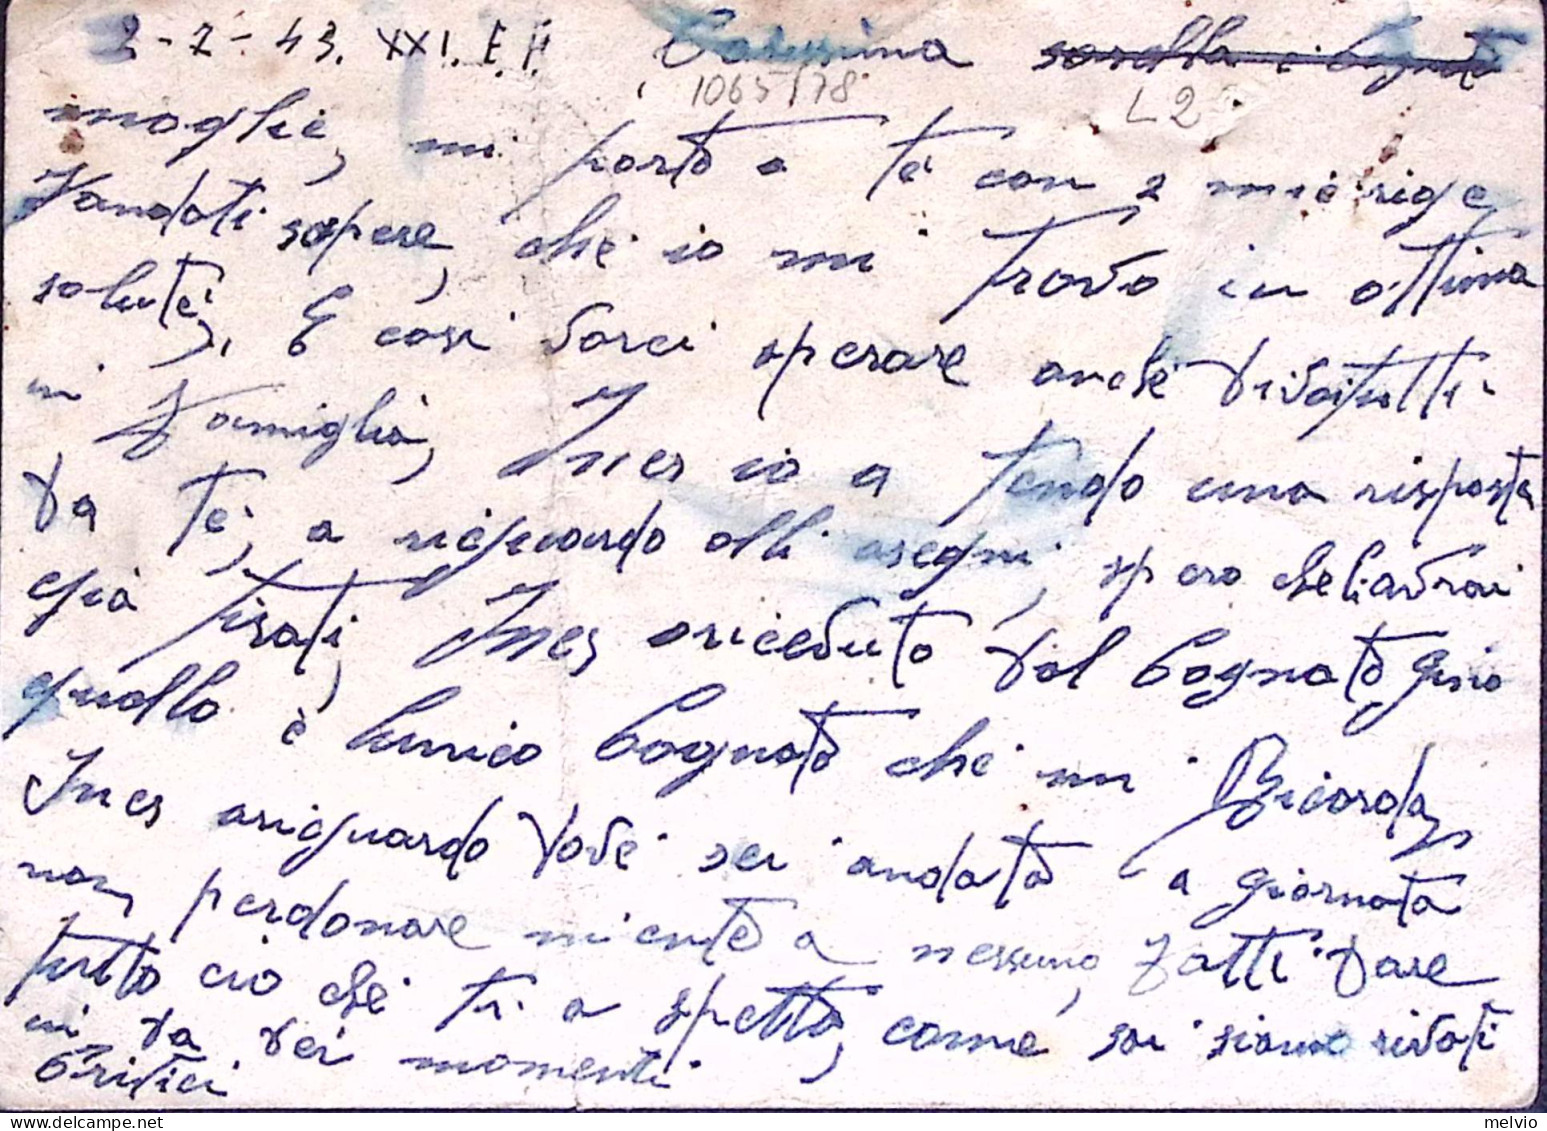 2-7-43. XXI. E. F. Carissima sorella e Cognato
1065/78 L2
moglie, mi porto a te con 2 mie rige
fandoti sapere, che io mi trovo in ottima
salute, E cosi vorei sperare anche di voi tutti
in famiglia, Ines io a tendo una risposta
da te, a riguardo alli asegni, spero che li avrai
già tirati, Ines o riceduto dal Cognato gino
quello è lunico Cognato che mi Ricorda,
Ines ariguardo dove sei andata a giornata
non perdonare niente a nessuno, fatti dare
tutto cio che ti a spetta, come sai siamo rivati
in da dei momenti
Critici
melvio